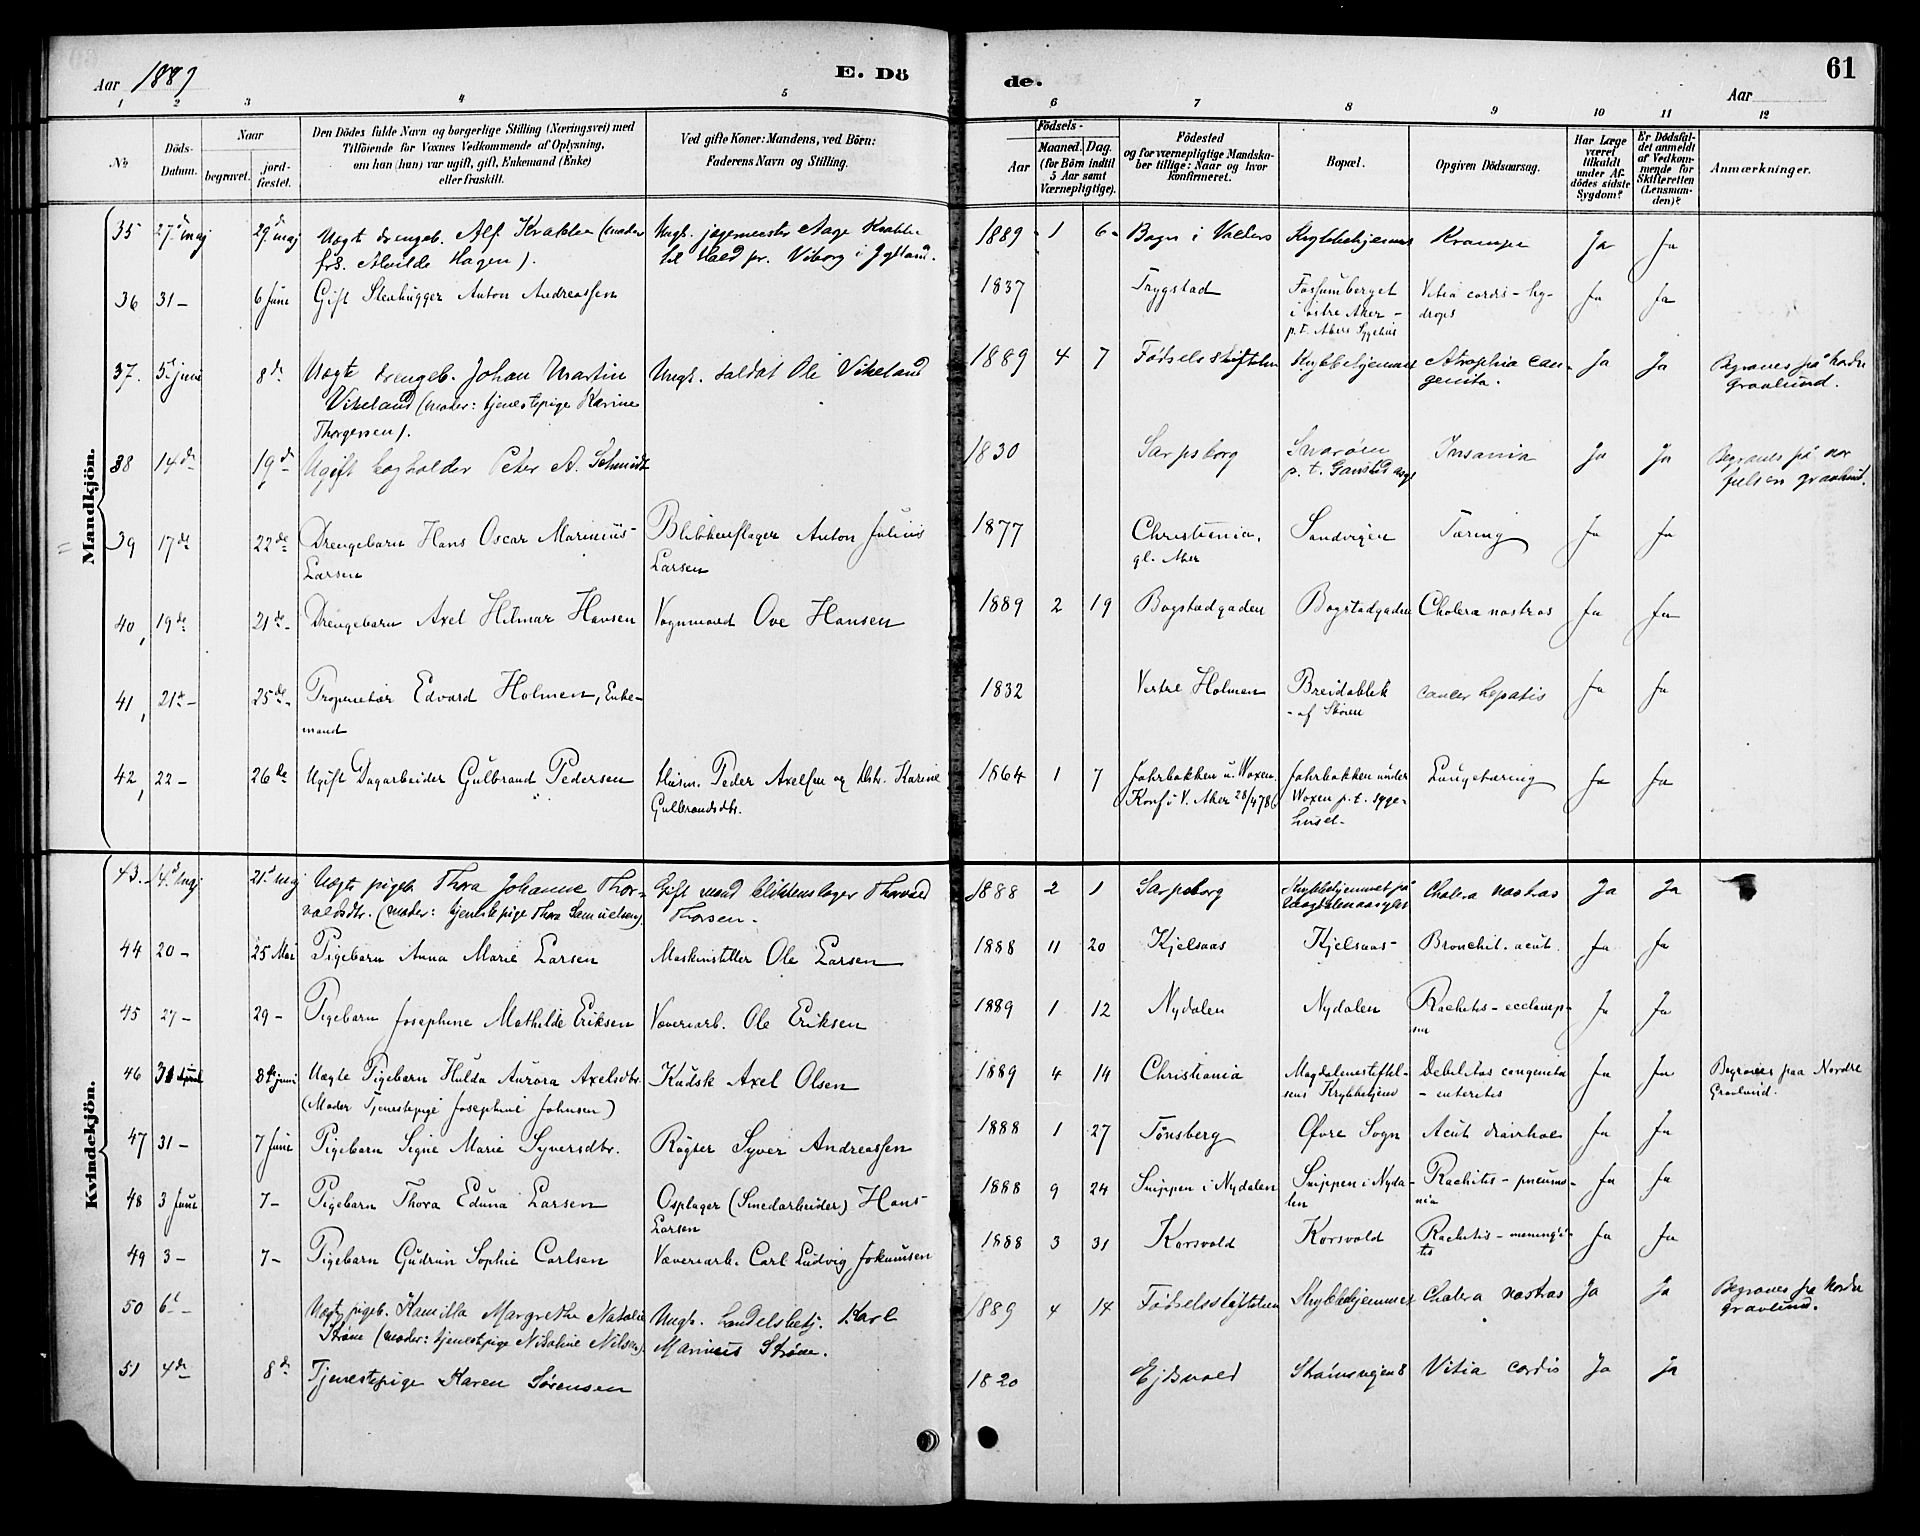 Aar 1889
E. Dö
de.
Aar
61
1 2 3 4 5 6 7 8 9 10 11 12
No
Döds-Datum.
Naar
begravet.
jord-fæstet.
Den Dödes fulde Navn og borgerlige Stilling (Næringsvei) med
Tilföiende for Voxnes Vedkommende af Oplysning,
om han (hun) var ugift, gift, Enkemand (Enke)
eller fraskilt.
Ved gifte Koner: Mandens, ved Börn:
Faderens Navn og Stilling.
Födsels-
Aar
Maaned. Dag.
(for Börn indtil
5 Aar samt
Værnepligtige).
Födested
og for værnepligtige Mandska-
ber tillige: Naar og hvor
konfirmeret.
Bopæl.
Opgiven Dödsaarsag.
Har Læge
været
tilkaldt
under Af-
dödes sidste
Sygdom?
Er Dödsfal-
det anmeldt
af Vedkom-
mende for
Skifteretten
(Lensman-
den)?
Anmærkninger.
Mandkjön.
35 27de maj 29de maj Uægte drengeb. Alf Krabbe (moder Ungk. jægermester Aage Krabbe 1889 1 6 Bagn i Valders Krybbehjemmet Krampe Ja Ja
frk. Alvilde Hagen). til Hald pr. Viborg i Jylland.
36 31 – 6 Juni Gift Stenhugger Anton Andreassen 1837 Trygstad Fossumberget Vitia cordis – hy- Ja Ja
i østre Aker – drops
p.t. Akers Sygehus
37. 5te juni 8de Uægte drengeb. Johan Martin Ungk. soldat Ole Vikeland 1889 4 7 Fødselsstiftelsen Krybbehjemmet Atrophia con- Ja Ja Begraves på Nordre
Vikeland (moder: tjenestepige Karine genita. Gravlund.
Thorgersen).
38 14de 19de Ugift bogholder Peter A. Schmidt 1830 Sarpsborg Snarøen Insania Ja Ja Begraves på vor
p.t. Gaustad asyl frelsers gravlund.
39 17de 22de Drengebarn Hans Oscar Marinius Blikkenslager Anton Julius 1877 Christiania, Sandvigen Tæring Ja Ja
Larsen Larsen gl. Aker
40, 19de 21de – Drengebarn Axel Hilmar Hansen Vognmand Ove Hansen 1889 2 19 Bogstadgaden Bogstadgaden Cholera nostras Ja Ja
41, 21de – 25de – Proprietær Edvard Holmen, Enke- 1832 Vestre Holmen Breidablik cancer hepatis Ja Ja
mand – af Skøien
42, 22 – 26de Ugift Dagarbeider Gulbrand Pedersen Husm. Peder Axelsen og Hstr. Karine 1864 1 7 Jahrbakken u. Woxen. Jahrbakken under Lungetæring Ja Ja
Gulbrandsdtr. Konf i V. Aker 28/4 78 Woxen p.t. syge-
huset –
Kvindekjön.
43. 14de maj 21de maj Uægte pigeb. Thora Johanne Thor- Gift mand blikkenslager Thorvald 1888 2 1 Sarpsborg Krybbehjemmet på Cholera nostras Ja Ja
valdsdtr. (moder: tjenestepige Thora Samuelsen). Thorsen.
44 20 – 25 Mai Pigebarn Anna Marie Larsen Maskinstiller Ole Larsen 1888 11 20 Kjelsaas Kjelsaas – Bronchit. acut. Ja Ja
45 27 – 29 – Pigebarn Josephine Mathilde Eriksen Væveriarb. Ole Eriksen 1889 1 12 Nydalen Nydalen Rachitis – ecclamp- Ja Ja
sia
46 30 April 8de juni Uægte Pigebarn Hulda Aurora Axelsdtr. Kudsk Axel Olsen 1889 4 14 Christiania Magdalenestiftel- Debilitas congenita Ja Ja Begraves paa Nordre
(Moder Tjenestepige Josephine Johnsen) sens Krybbehjem – enteritis Gravlund.
47 31 – 7 Juni Pigebarn Signe Marie Syversdtr. Røgter Syver Andreassen 1888 1 27 Tønsberg Øvre Sogn Acut diarrhoe Ja Ja
48 3 Juni 7 – Pigebarn Thora Eduna Larsen Opslager (Smedarbeider) Hans 1888 9 24 Snippen i Nydalen Snippen i Nyda- Rachitis – pneumo- Ja Ja
Larsen len nia
49 3 – 7 – Pigebarn Gudrun Sophie Carlsen Væveriarb. Carl Ludvig Jokumsen 1888 3 31 Korsvold Korsvold Rachitis – meningi- Ja Ja
tis
50 6te – Uægte pigeb. Kamilla Margrethe Natalie Ungk. handelsbetj. Karl 1889 4 14 Fødselsstiftelsen Krybbehjemmet Cholera nostras Ja Ja Begraves på Nordre
Strøm (moder: tjenestepige Nikoline Nilsen) Marinius Strøm. gravlund.
51 4de 8de Tjenestepige Karen Sørensen 1820 Ejdsvold Strømsvejen 8 Vitia cordis Ja Ja